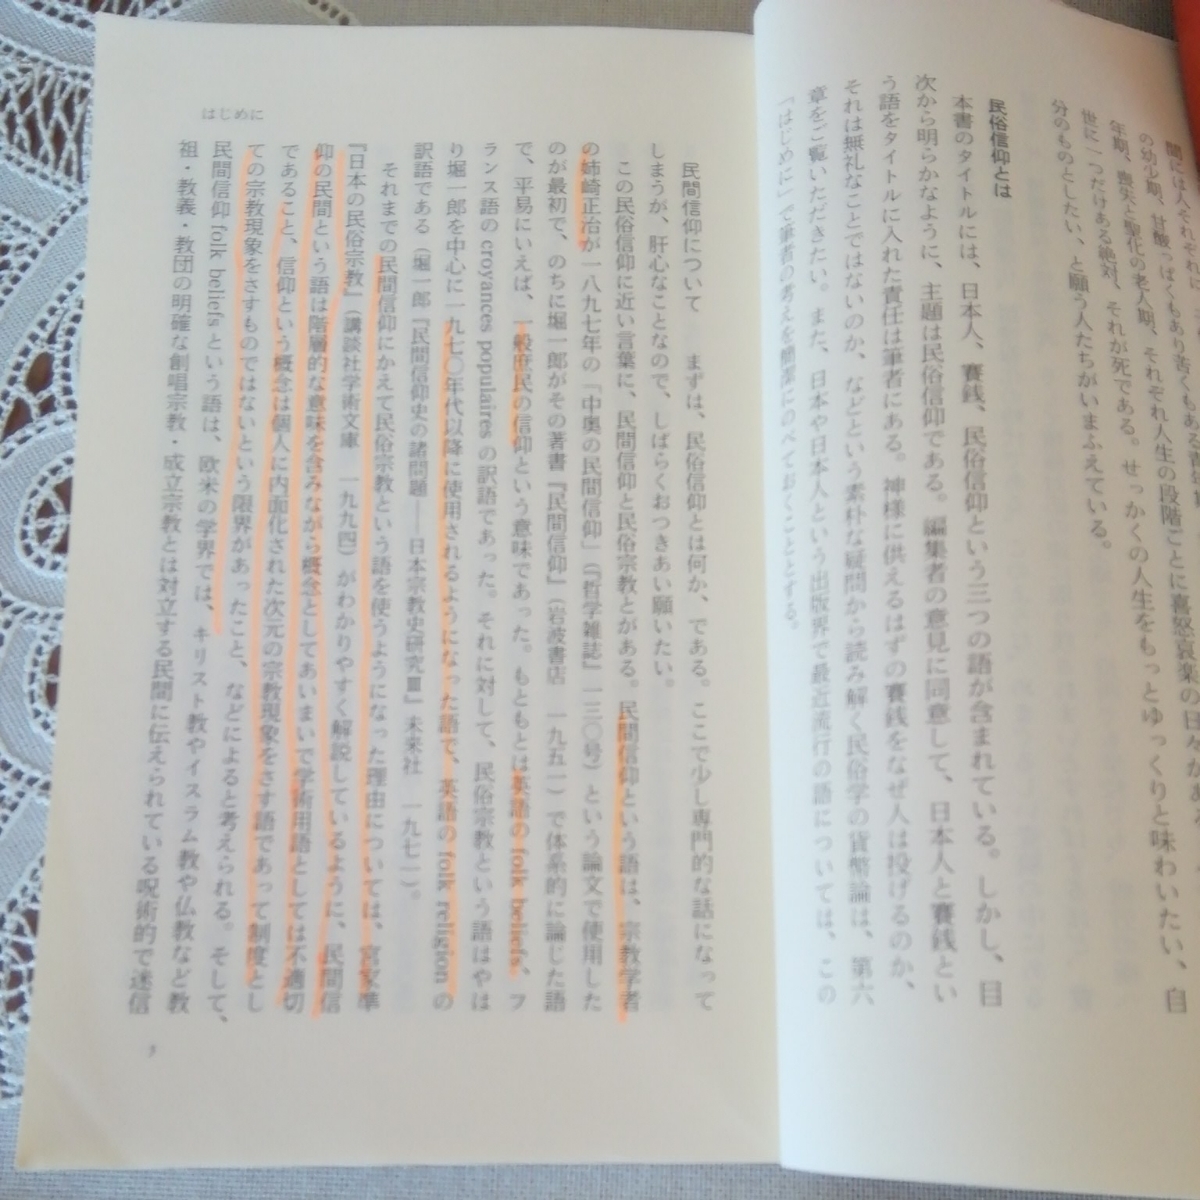 の幼少期、甘酸っぱくもあり苦くもある青
年期、喪失と聖化の老人期、それぞれ人生の段階ごとに喜怒哀楽の日々がある
世に一つだけある絶対、それが死である。せっかくの人生をもっとゆっくりと味わいたい、自
分のものとしたい、と願う人たちがいまふえている。
民俗信仰とは
本書のタイトルには、日本人、賽銭、民俗信仰という三つの語が含まれている。しかし、目
次から明らかなように、主題は民俗信仰である。編集者の意見に同意して、日本人と賽銭とい
う語をタイトルに入れた責任は筆者にある。神様に供えるはずの賽銭をなぜ人は投げるのか、
それは無礼なことではないのか、などという素朴な疑問から読み解く民俗学の貨幣論は、第六
章をご覧いただきたい。また、日本や日本人という出版界で最近流行の語については、この
「はじめに」で筆者の考えを簡潔にのべておくこととする。
はじめに
民間信仰について まずは、民俗信仰とは何か、である。ここで少し専門的な話になって
しまうが、肝心なことなので、しばらくおつきあい願いたい。
この民俗信仰に近い言葉に、民間信仰と民俗宗教とがある。民間信仰という語は、宗教学者
の姉崎正治が一八九七年の「中奥の民間信仰」(『哲学雑誌』一三〇号)という論文で使用した
のが最初で、のちに堀一郎がその著書『民間信仰』(岩波書店 一九五一)で体系的に論じた語
で、平易にいえば、一般庶民の信仰という意味であった。もともとは英語の folk beliefs、フ
ランス語の croyances populaires の訳語であった。それに対して、民俗宗教という語はやは
り堀一郎を中心に一九七〇年代以降に使用されるようになった語で、英語の folk religion の
訳語である(堀一郎『民間信仰史の諸問題――日本宗教史研究Ⅲ』未来社 一九七一)。
それまでの民間信仰にかえて民俗宗教という語を使うようになった理由については、宮家準
『日本の民俗宗教』(講談社学術文庫 一九九四)がわかりやすく解説しているように、民間信
仰の民間という語は階層的な意味を含みながら概念としてあいまいで学術用語としては不適切
であること、信仰という概念は個人に内面化された次元の宗教現象をさす語であって制度とし
ての宗教現象をさすものではないという限界があったこと、などによると考えられる。そして、
民間信仰 folk beliefs という語は、欧米の学界では、キリスト教やイスラム教や仏教など教
祖・教義・教団の明確な創唱宗教・成立宗教とは対立する民間に伝えられている呪術的で迷信